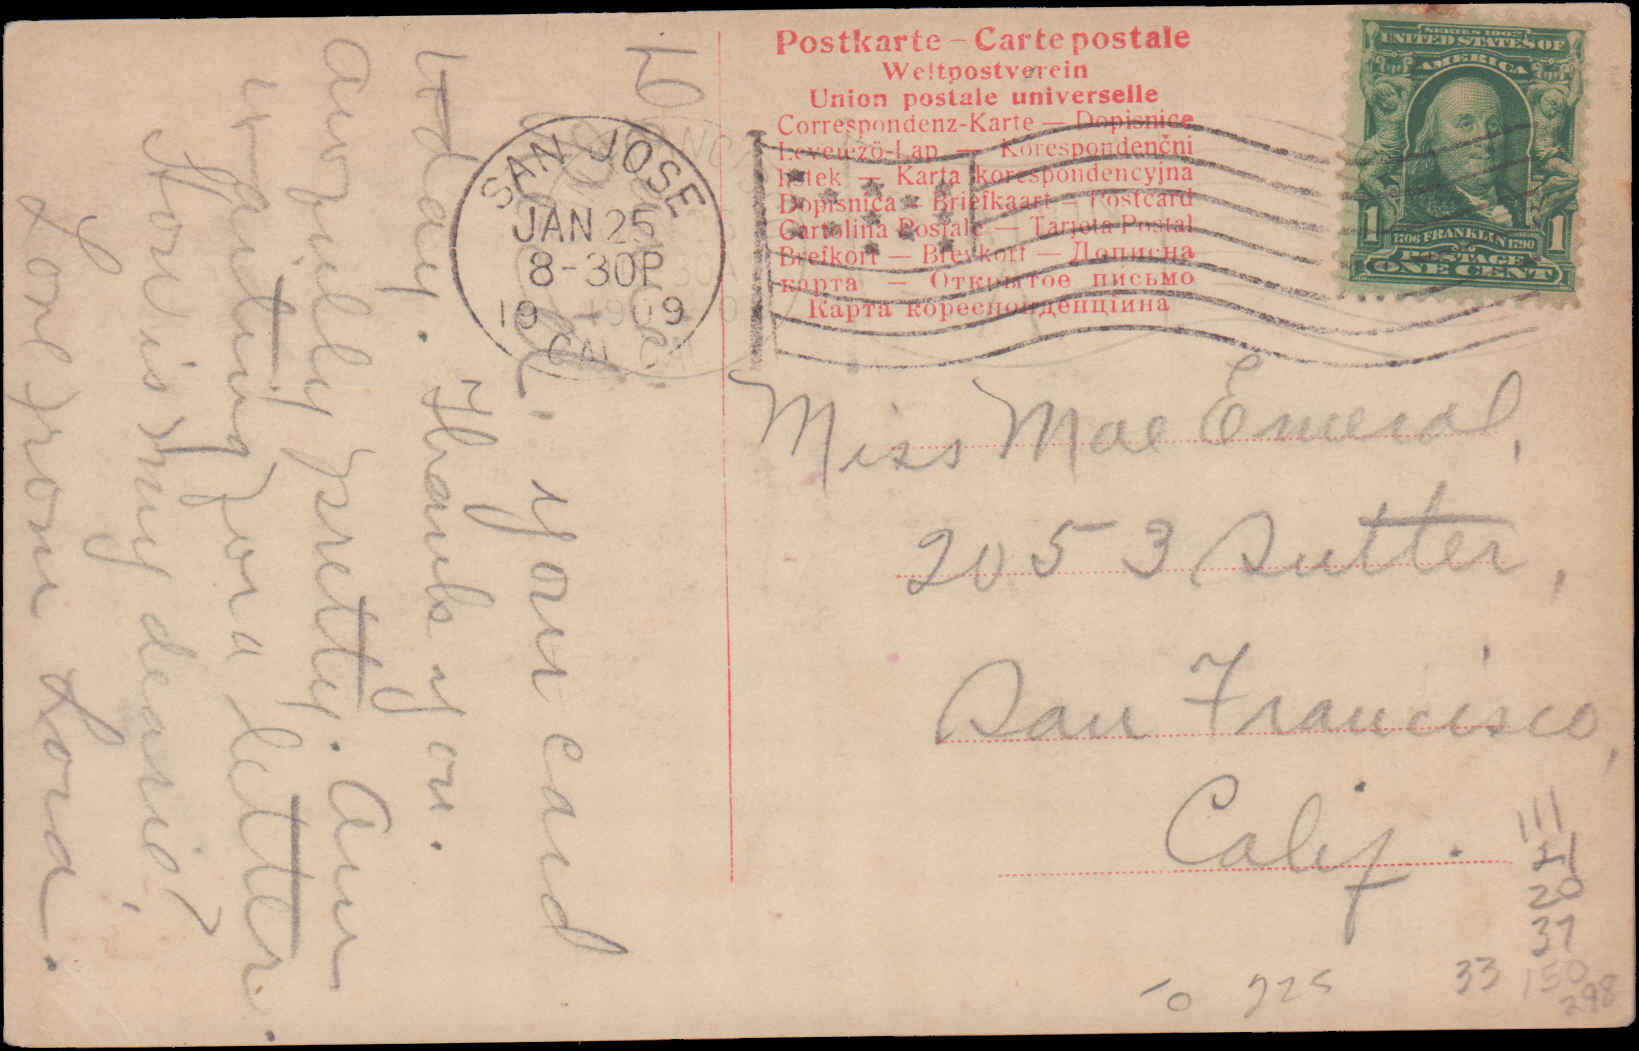 Postkarte – Carte postale
Weltpostverein
Union postale universelle
Correspondenz-Karte — Dopisnice
Levelező-Lap — Korespondenční
lístek — Karta korespondencyjna
Dopisnica — Briefkaart — Postcard
Cartolina Postale — Tarjeta Postal
Brefkort — Brevkort — Дописна
карта — Открытое письмо
Карта кореспонденційна
SERIES 1902
UNITED STATES OF
AMERICA
1 1706 FRANKLIN 1790 1
POSTAGE
ONE CENT
SAN JOSE
JAN 25
8-30P
1909
CAL
your card
today. Thanks you.
Awfully pretty. Am
waiting for a letter.
How is my dearie?
Love from Lora.
Miss Mae Emeral,
2053 Sutter,
San Francisco,
Calif.
111
21
20
37
33 150
298